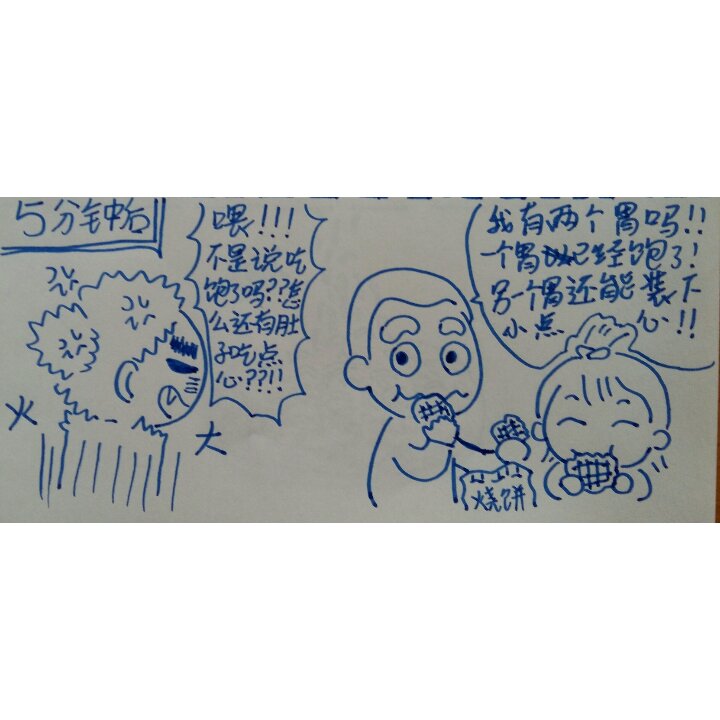 5分钟后
喂!!!
不是说吃
饱了吗??怎
么还有肚
子吃点
心??!!
火 大
我有两个胃吗!!
一个胃已经饱了!
另一个胃还能装下
小点 心!!
烧饼